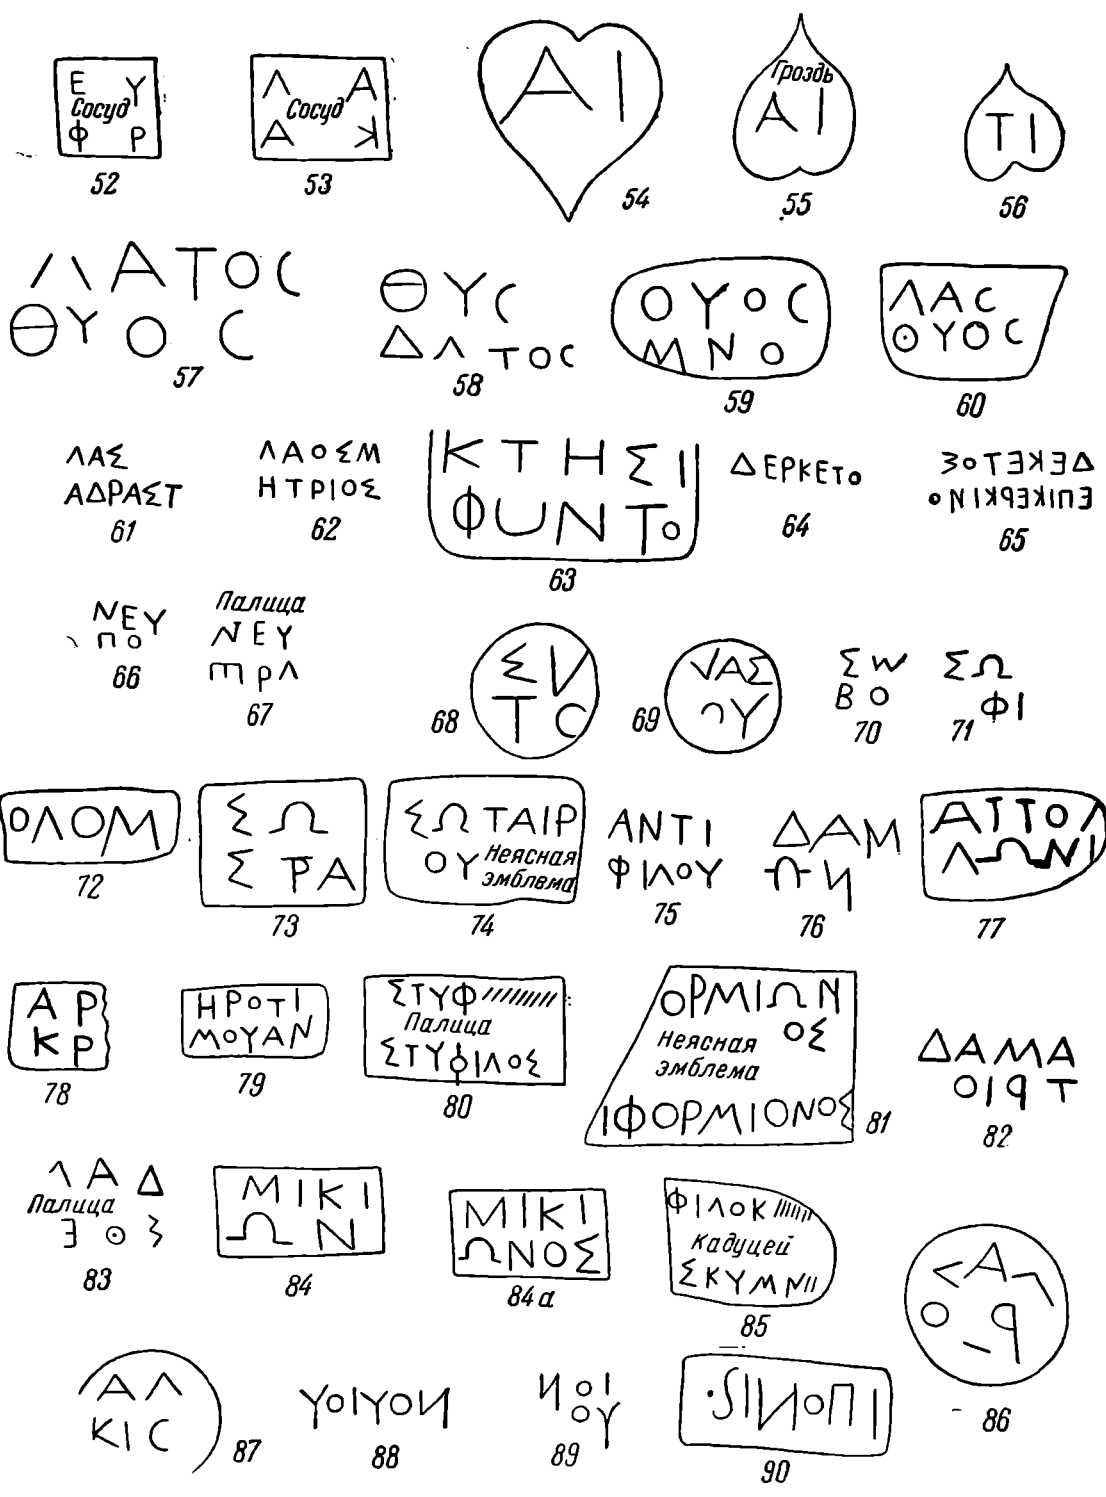 Ε Υ
Сосуд
Φ Ρ
52
Λ Α
Сосуд
Α Κ
53
ΑΙ
54
Гроздь
ΑΙ
55
ΤΙ
56
ΛΑΤΟC
ΘΥΟC
57
ΘΥC
ΔΛΤΟC
58
ΟΥΟC
ΜΝΟ
59
ΛΑC
ΘΥΟC
60
ΛΑΣ
ΑΔΡΑΣΤ
61
ΛΑΟΣΜ
ΗΤΡΙΟΣ
62
ΚΤΗΣΙ
ΦΩΝΤΟ
63
ΔΕΡΚΕΤΟ
64
ΔΕΚΕΤΟΣ
ΕΠΙΚΕΡΚΙΝΟ
65
ΝΕΥ
ΠΟ
66
Палица
ΝΕΥ
ΠΡΛ
67
ΣΝ
ΤC
68
ΛΑΣ
ΟΥ
69
ΣW
ΒΟ
70
ΣΩ
ΦΙ
71
ΟΛΟΜ
72
ΣΩ
ΣΤΡΑ
73
ΣΩΤΑΙΡ
ΟΥ Неясная
эмблема
74
ΑΝΤΙ
ΦΙΛΟΥ
75
ΔΑΜ
ΩΝ
76
ΑΠΟΛ
ΛΩΝΙ
77
ΑΡ
ΚΡ
78
ΗΡΟΤΙ
ΜΟΥΑΝ
79
ΣΤΥΦ
Палица
ΣΤΥΦΙΛΟΣ
80
ΟΡΜΙΩΝ
ΟΣ
Неясная
эмблема
ΙΦΟΡΜΙΟΝΟΣ
81
ΔΑΜΑ
ΟΙΡΤ
82
ΛΑΔ
Палица
ΕΘΣ
83
ΜΙΚΙ
ΩΝ
84
ΜΙΚΙ
ΩΝΟΣ
84а
ΦΙΛΟΚ
кадуцей
ΣΚΥΜΝ
85
86
ΑΛ
ΚΙC
87
ΥΟΙΥΟΝ
88
ΝΟΙ
ΟΥ
89
ΙΝΟΠΙ
90